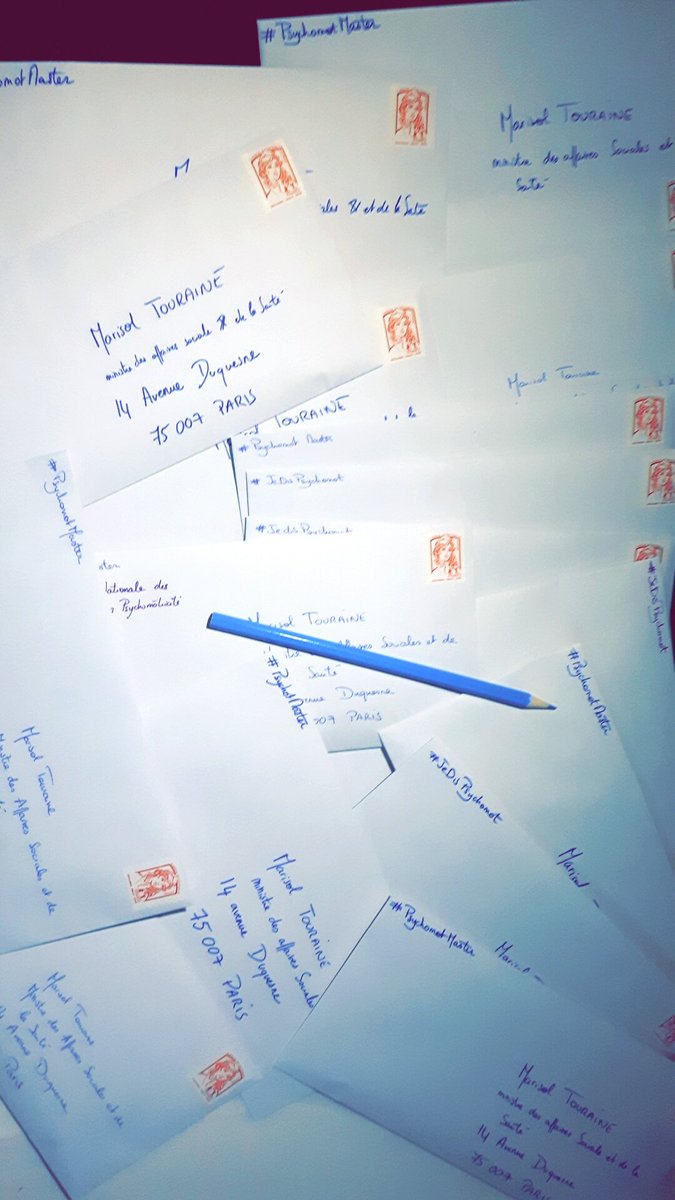 #PsychomotMaster
omotMaster
Marisol TOURAINE
ministre des affaires Sociales et
Santé
M
ales & et de la Santé
Marisol TOURAINE
ministre des affaires sociale & de la Santé
14 Avenue Duquesne
75 007 PARIS
Marisol Touraine
TOURAINE
#Psychomot Master
#JeDisPsychomot
#JeDisPsychomot
#PsychomotMaster
ster
nationale des
Psychomotricité
Marisol TOURAINE
affaires Sociales et de
Santé
Duquesne
007 PARIS
#PsychomotMaster
#JeDisPsychomot
#PsychomotMaster
#JeDisPsychomot
Marisol
Marisol Touraine
Ministre des Affaires Sociales et de
Marisol TOURAINE
ministre des affaires Sociales
14 avenue Duquesne
75007 PARIS
#PsychomotMaster
Marisol Touraine
Ministre des Affaires Sociales et de
la Santé
14 Avenue Duquesne
Paris
Marisol TOURAINE
ministre des affaires Sociale et de la
Santé
14 Avenue Duquesne
75007 PARIS